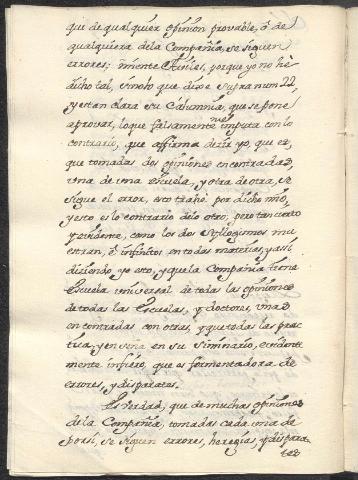 que de qualquier opinion provable, ò de
qualquiera dela Compañia, se siguen
errores; miente Aviles, porque yo no hè
dicho tal, sino lo que dixe supra num 22,
y es tan clara su Calumnia, que se pone
aprovar, lo que falsamente me imputa con lo
contrario, que affirma dezir yo, que es,
que tomadas dos opiniones encontradas,
una de una escuela, y otra de otra, se
sigue el error, esto trahe por dicho mio,
y esto es lo contrario delo otro, pero tan cierto
y evidente, como los dos syllogismos mu
estran, ò infinitos en todas materias, y assi
diziendo yo esto, y que la Compañia tiene
escuela universal de todas las opiniones
de todas las Escuelas, y doctores, unas
encontradas con otras, y que todas las prac
tica, y enseña en su Seminario, evidente
mente infiero, que es formentadora de
errores, y disparates.
Es verdad, que de muchas opiniones
dela Compañia, tomadas cada una de
por si, se siguen errores, heregias, y dispara-
tes